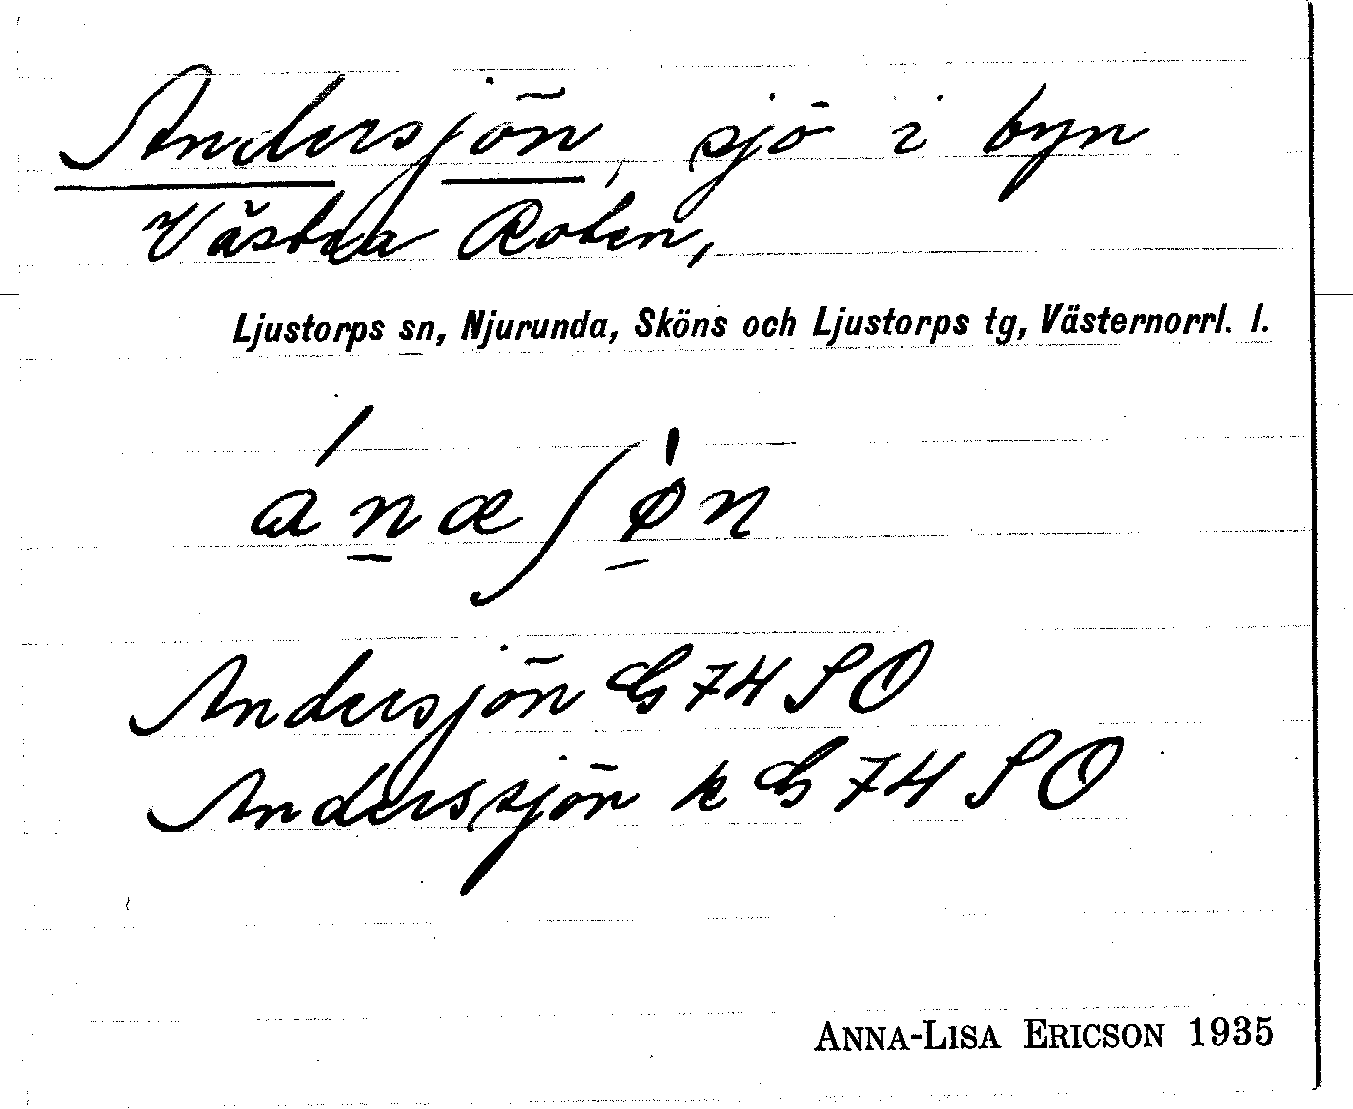 Andersjön, sjö i byn
Västra Roten,
Ljustorps sn, Njurunda, Sköns och Ljustorps tg, Västernorrl. l.
ánæʃø̀n
Andersjön G 74 SO
Anderssjön k G 74 SO
ANNA-LISA ERICSON 1935